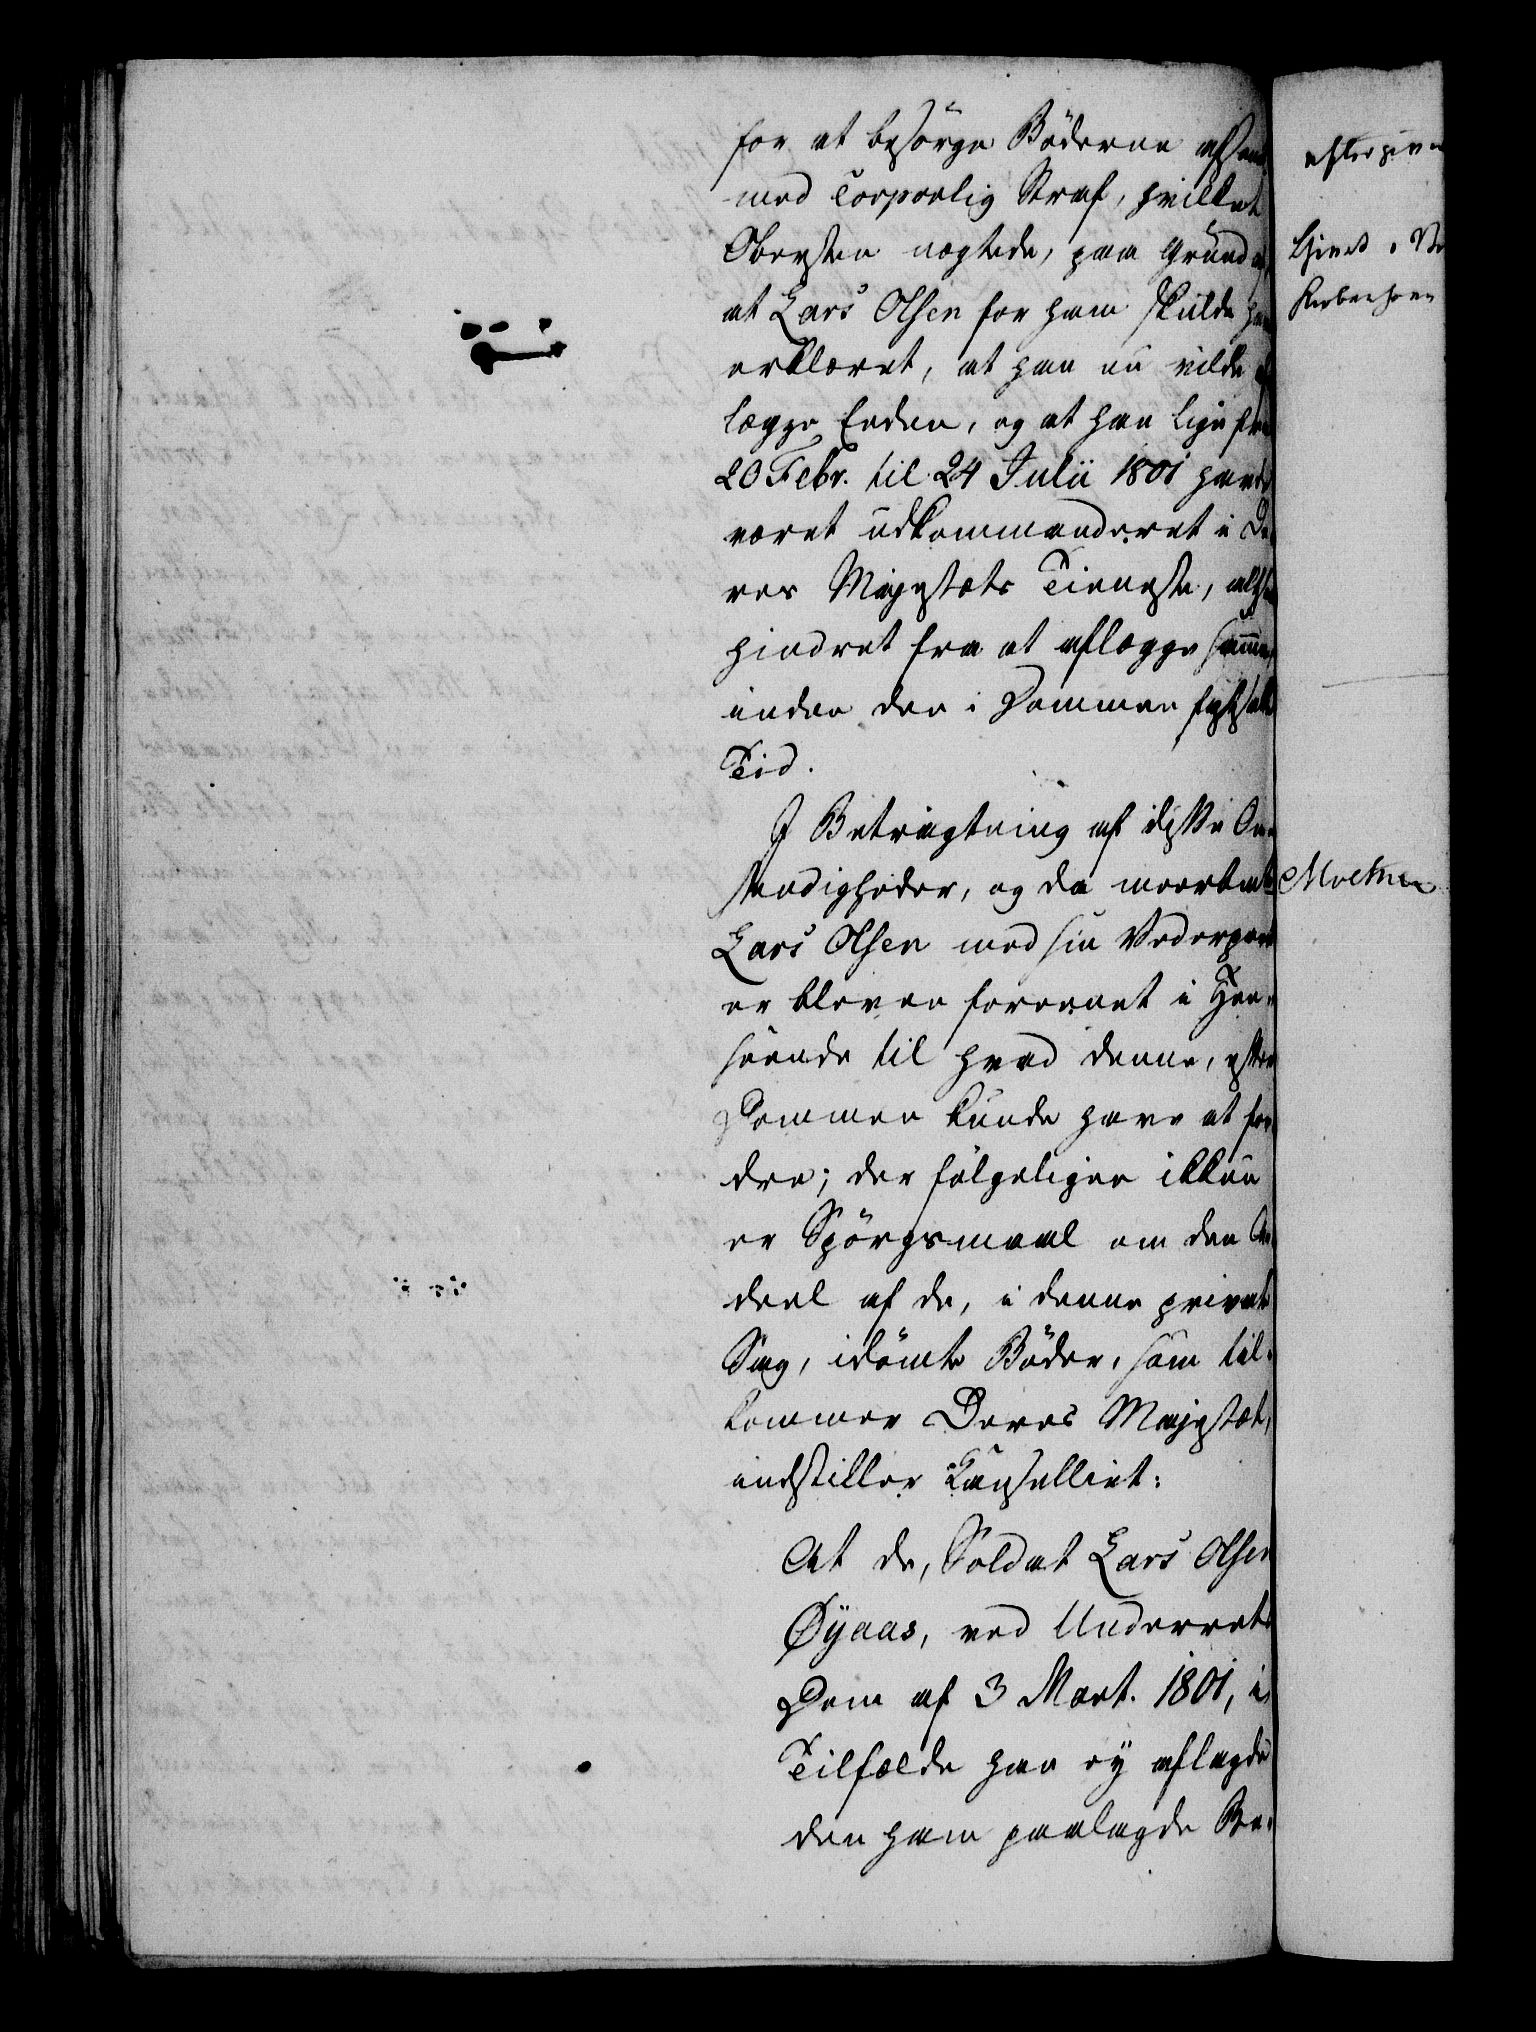 for at besörge Böderne afsone
med Corporlig Straf, hvilket
Obersten nægtede, paa Grund af,
at Lars Olsen for ham skulde have
erklæret, at han nu vilde af-
lægge Eeden, og at han lige fra
20 Febr. til 24 Julii 1801 havde
været udkommanderet i De-
res Majestæts Tieneste, altsaa
hindret fra at aflægge samme
inden den i Dommen fastsatte
Tid.
I Betragtning af disse Om-
stændigheder, og da meerbemte
Lars Olsen med sin Vederpart
er bleven foreenet i Hen-
seende til hvad denne, efter
Dommen kunde have at for-
dre; der fölgeligen ikkun
er Spörgsmaal om den An-
deel af de, i denne private
Sag, idömte Böder, som til-
kommer Deres Majestæt,
indstiller Cancelliet:
At de, Soldat Lars Olsen
Øÿaas, ved Underrets
Dom af 3 Mart. 1801, i
Tilfælde han eÿ aflagde
den ham paalagde Be-
eftergives
Kiøbenhavn
Moltke